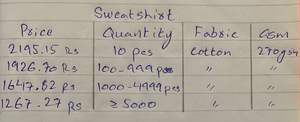 Sweatshirt
Price Quantity Fabric GSM
2195.15 Rs 10 pcs cotton 270gsm
1926.70 Rs 100-999 pcs " "
1647.82 Rs 1000-4999 pcs " "
1267.27 Rs ≥5000 " "